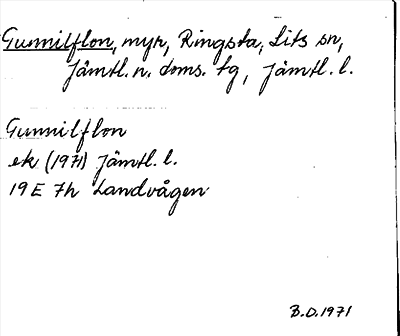 Gunnilflon, myr, Ringsta, Lits sn,
Jämtl. n. doms. tg, Jämtl. l.
Gunnilflon
ek (1971) Jämtl. l.
19 E 7h Landvågen
B.O. 1971